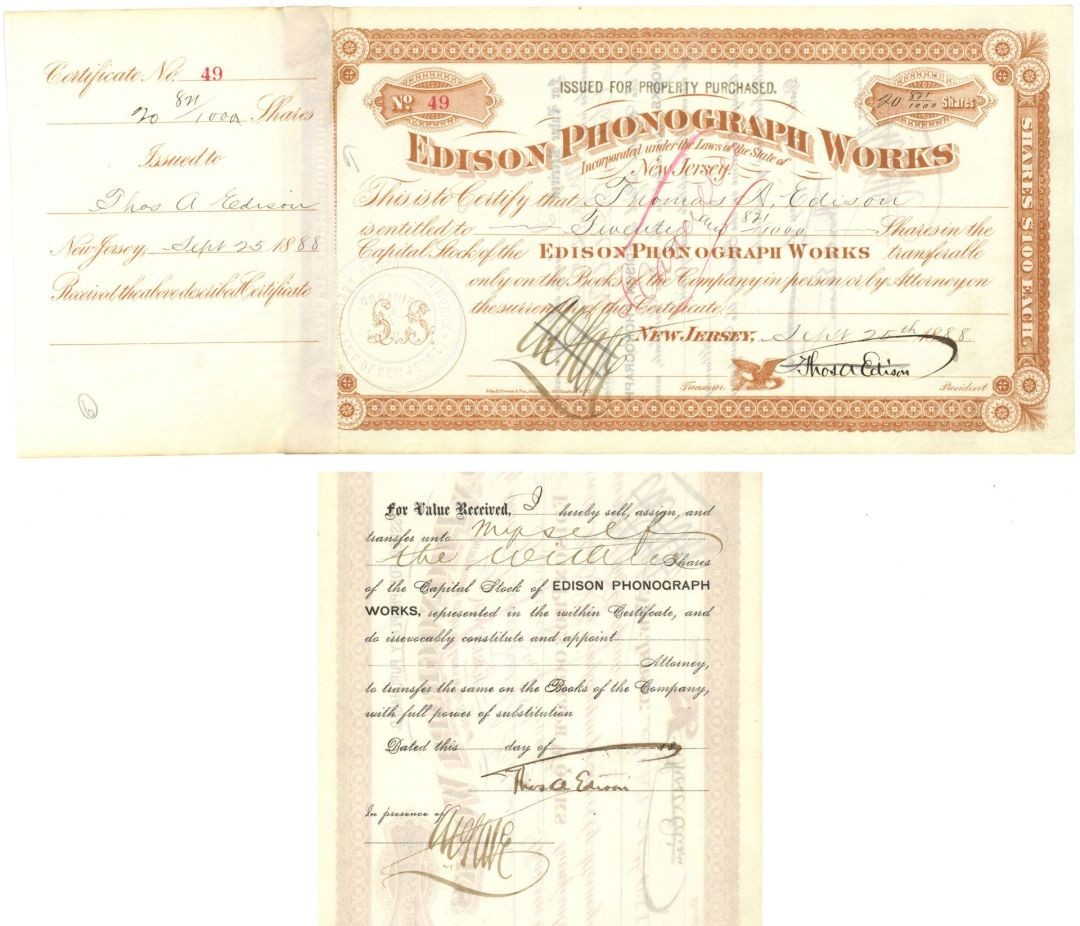 Certificate No. 49
20 821/1000 Shares
Issued to
Thos A Edison
New Jersey, Sept 25 1888
Received the above described Certificate
6
ISSUED FOR PROPERTY PURCHASED.
No 49
20 821/1000 Shares
EDISON PHONOGRAPH WORKS
Incorporated under the Laws of the State of
New Jersey.
This is to Certify that Thomas A. Edison
is entitled to Twenty and 821/1000 Shares in the
Capital Stock of the EDISON PHONOGRAPH WORKS transferable
only on the Books of the Company in person or by Attorney on
the surrender of this Certificate.
NEW JERSEY, Sept 25th 1888.
Thos A Edison
Treasurer. President
SHARES $100 EACH.
For Value Received, I hereby sell, assign, and
transfer unto Myself
the within Shares
of the Capital Stock of EDISON PHONOGRAPH
WORKS, represented in the within Certifcate, and
do irrevocably constitute and appoint
Attorney,
to transfer the same on the Books of the Company,
with full power of substitution
Dated this day of 18
Thos A Edison
In presence of